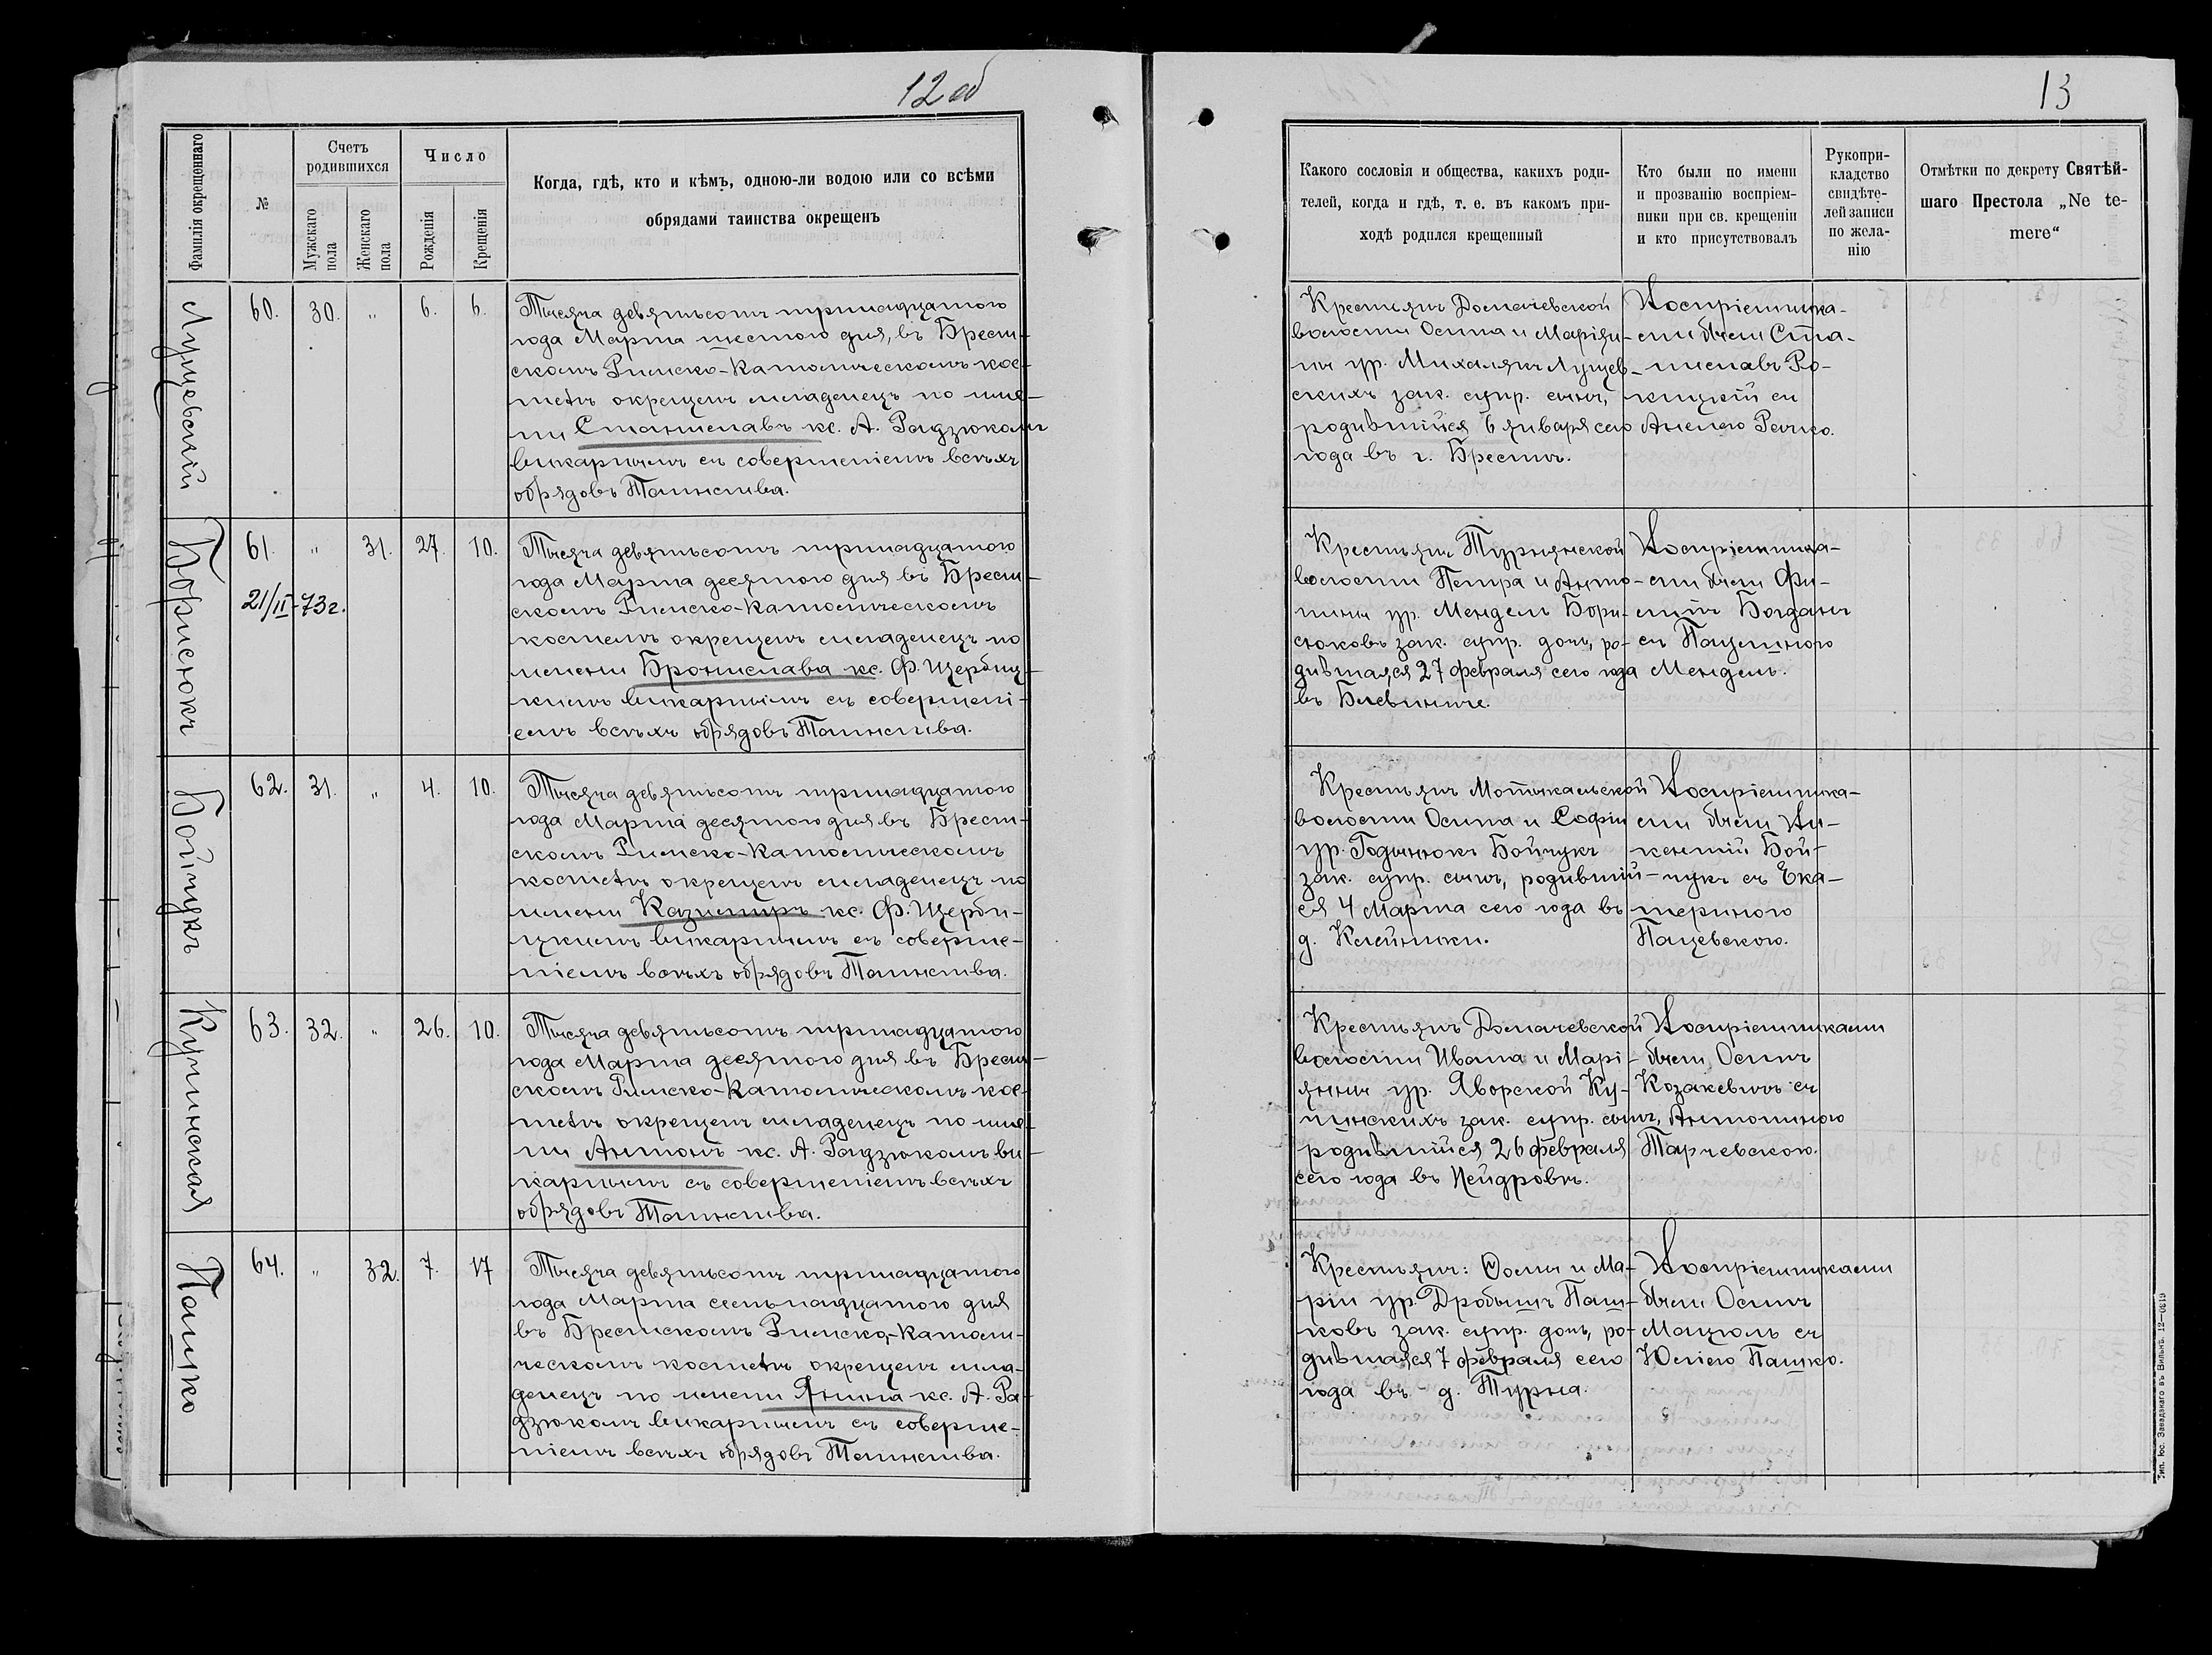 12 об
Фамилія окрещеннаго
№
Счетъ
родившихся
Мужскаго
пола
Женскаго
пола
Число
Рожденія
Крещенія
Когда, гдѣ, кто и кѣмъ, одною-ли водою или со всѣми
обрядами таинства окрещенъ
Луцевскій
60. 30. „ 6. 6.
Тысяча девятьсотъ тринадцатого
года Марта шестого дня, въ Брест-
скомъ Римско-Католическомъ кос-
телѣ окрещенъ младенецъ по име-
ни Станиславъ кс. А. Радзюкомъ
викарнымъ съ совершеніемъ всѣхъ
обрядовъ Таинства.
Борисюкъ
61. „ 31. 27. 10.
21/II-73г.
Тысяча девятьсотъ тринадцатого
года Марта десятого дня въ Брест-
скомъ Римско-Католическомъ
костелѣ окрещенъ младенецъ по
имени Бронислава кс. Ф. Щербиц-
кимъ викарнымъ съ совершені-
емъ всѣхъ обрядовъ Таинства.
Бойчукъ
62. 31. „ 4. 10.
Тысяча девятьсотъ тринадцатого
года Марта десятого дня въ Брест-
скомъ Римско-Католическомъ
костелѣ окрещенъ младенецъ по
имени Казимиръ кс. Ф. Щерби-
цкимъ викарнымъ съ соверше-
ніемъ всѣхъ обрядовъ Таинства.
Купинская
63. 32. „ 26. 10.
Тысяча девятьсотъ тринадцатого
года Марта десятого дня въ Брест-
скомъ Римско-Католическомъ кос-
телѣ окрещенъ младенецъ по име-
ни Антонъ кс. А. Радзюкомъ ви-
карнымъ съ совершеніемъ всѣхъ
обрядовъ Таинства.
Пашко
64. „ 32. 7. 17
Тысяча девятьсотъ тринадцатого
года Марта семьнадцатого дня
въ Брестскомъ Римско-Католи-
ческомъ костелѣ окрещенъ мла-
денецъ по имени Янина кс. А. Ра-
дзюкомъ викарнымъ съ соверше-
ніемъ всѣхъ обрядовъ Таинства.
13
Какого сословія и общества, какихъ роди-
телей, когда и гдѣ, т. е. въ какомъ при-
ходѣ родился крещенный
Кто были по имени
и прозванію воспріем-
ники при св. крещеніи
и кто присутствовалъ
Рукопри-
кладство
свидѣте-
лей записи
по жела-
нію
Отмѣтки по декрету Святѣй-
шаго Престола „Ne te-
mere“
Крестьянъ Домачевской
волости Осипа и Маріян-
ны ур. Михалякъ Луцев-
скихъ зак. супр. сынъ,
родившійся 6 января сего
года въ г. Брестѣ.
Воспріемника-
ми были Ста-
ниславъ Ро-
кицкій съ
Анелею Рачко.
Крестьянъ Турнянской
волости Петра и Анто-
нины ур. Мендель Бори-
сюковъ зак. супр. дочь, ро-
дившаяся 27 февраля сего года
въ Блевиниче.
Воспріемника-
ми были Фи-
липпъ Богданъ
съ Пацешною
Мендель.
Крестьянъ Мотыкальской
волости Осипа и Софіи
ур. Годынюкъ Бойчукъ
зак. супр. сынъ, родившій-
ся 4 Марта сего года въ
д. Клейники.
Воспріемника-
ми были Ви-
кентій Бой-
чукъ съ Ека-
териною
Пацевскою.
Крестьянъ Домачевской
волости Ивана и Марі-
янны ур. Яворской Ку-
пинскихъ зак. супр. сынъ,
родившійся 26 февраля
сего года въ Нейдровѣ.
Воспріемниками
были Осипъ
Козакевичъ съ
Антониною
Тарчевскою.
Крестьянъ: Фомы и Ма-
ріи ур. Дробышъ Паш-
ковъ зак. супр. дочь, ро-
дившаяся 7 февраля сего
года въ д. Турна.
Воспріемниками
были Осипъ
Мацколь съ
Юліею Пашко.
Тип. Юс. Завадзкаго въ Вильнѣ. 12—0619